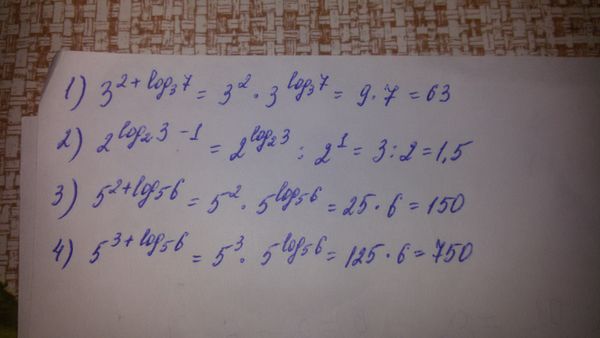 1) 3^{2+log_3 7} = 3^2 · 3^{log_3 7} = 9 · 7 = 63
2) 2^{log_2 3 -1} = 2^{log_2 3} : 2^1 = 3 : 2 = 1,5
3) 5^{2+log_5 6} = 5^2 · 5^{log_5 6} = 25 · 6 = 150
4) 5^{3+log_5 6} = 5^3 · 5^{log_5 6} = 125 · 6 = 750